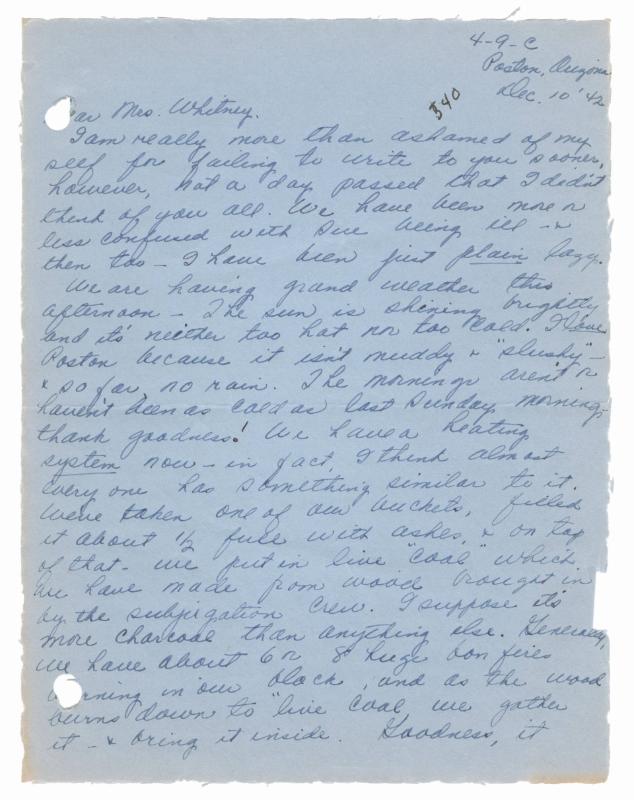 4-9-C
Poston, Arizona
Dec. 10 '42
340
ear Mrs. Whitney.
I am really more than ashamed of my
self for failing to write to you sooner,
however, not a day passed that I didn't
think of you all. We have been more or
less confused with Sue being ill - &
then too - I have been just plain lazy.
We are having grand weather this
afternoon - The sun is shining brightly
and it's neither too hot nor too cold. I love
Poston because it isn't muddy & "slushy" -
& so far, no rain. The mornings aren't or
haven't been as cold as last Sunday morning -
thank goodness! We have a heating
system now - in fact, I think almost
every one has something similar to it.
We've taken one of our buckets, filled
it about 1/2 full with ashes, & on top
of that - we put in live "coal" which
we have made from wood brought in
by the subjugation crew. I suppose it's
more charcoal than anything else. Generally,
we have about 6 or 8 huge bon fires
burning in our block, and as the wood
burns down to "live coal, we gather
it - & bring it inside. Goodness, it